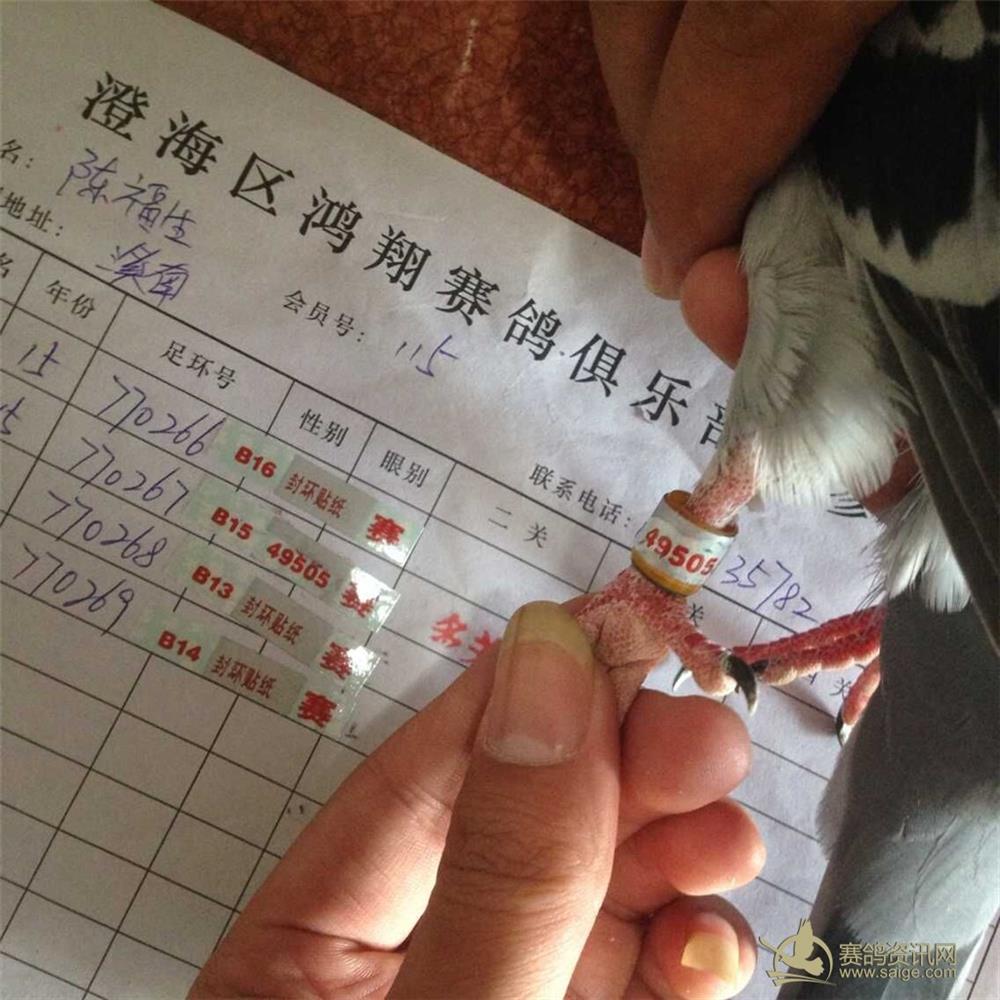 澄海区鸿翔赛鸽俱乐部
名: 陈福生
地址:
会员号: 115
联系电话: 35782
名 年份 足环号 性别 眼别 二关 关 关
15 770266 B16 封环贴纸 赛
15 770267 B15 49505 赛
770268 B13 封环贴纸 赛
770269 B14 封环贴纸 赛
49505
赛鸽资讯网
www.saige.com